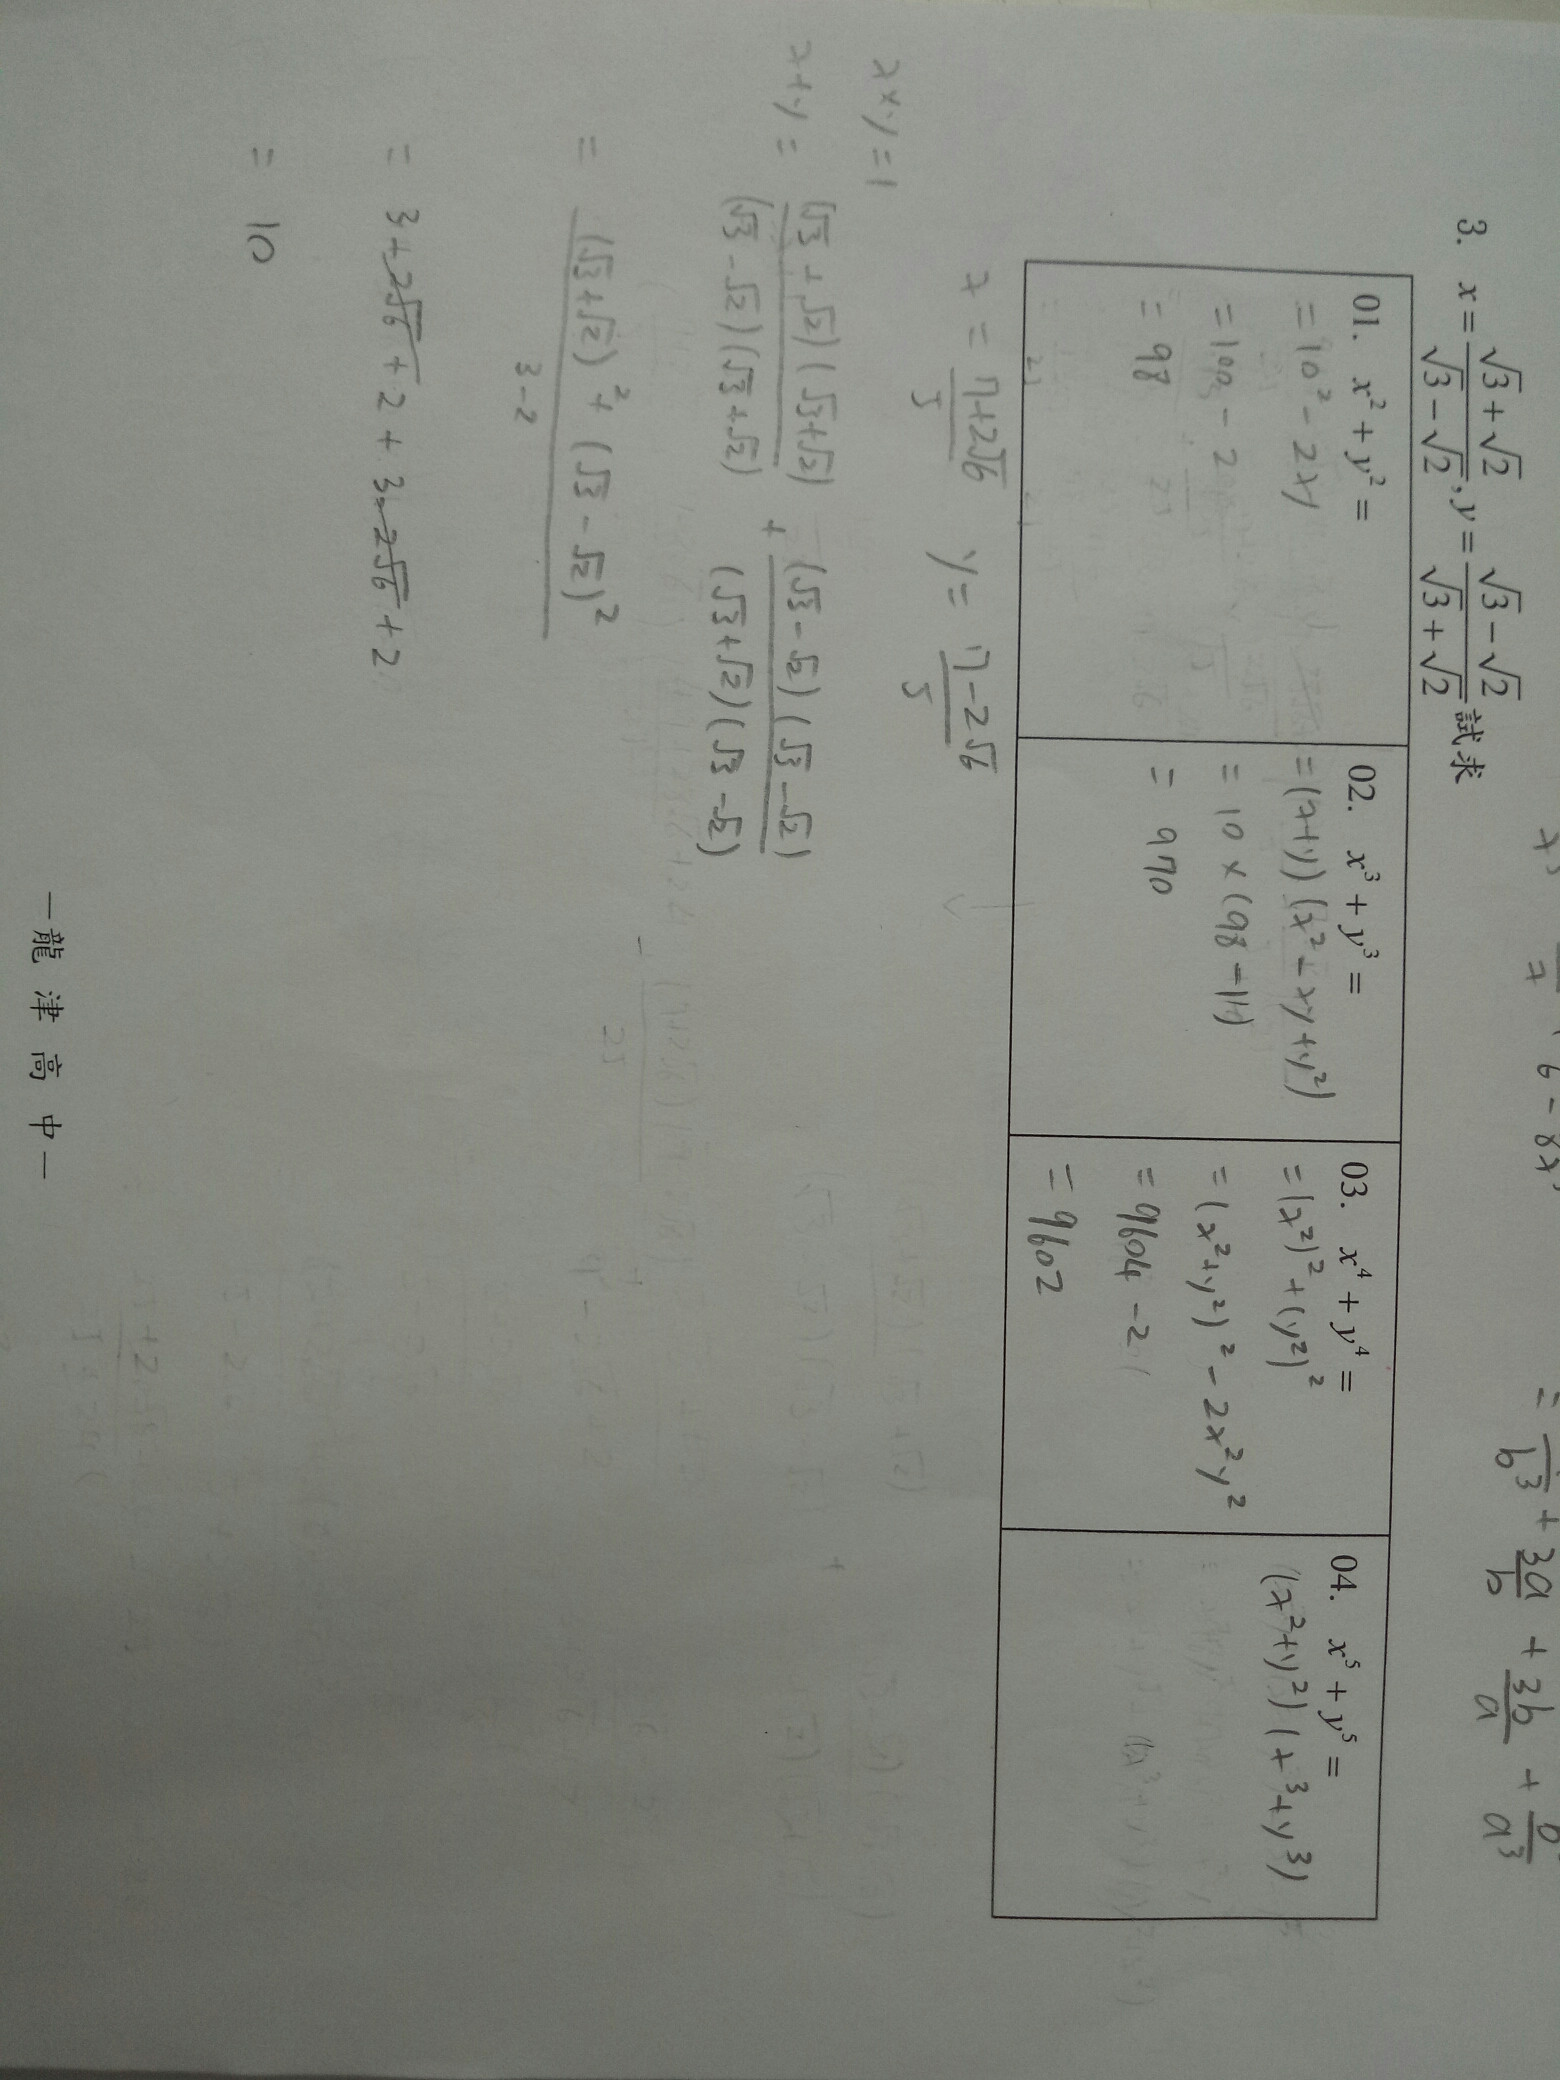 = b³ + 3a/b + 3b/a + a³
6 - 8x
3. x = (√3 + √2)/(√3 − √2), y = (√3 − √2)/(√3 + √2) 試求
01. x² + y² =
= 10² - 2xy
= 100 - 2
= 98
02. x³ + y³ =
= (x+y)(x² - xy + y²)
= 10 × (98 - 1)
= 970
03. x⁴ + y⁴ =
= (x²)² + (y²)²
= (x²+y²)² - 2x²y²
= 9604 - 2
= 9602
04. x⁵ + y⁵ =
(x²+y²)(x³+y³)
x = (7+2√6)/5 y = (7-2√6)/5
x×y=1
x+y = (√3+√2)(√3+√2)/(√3-√2)(√3+√2) + (√3-√2)(√3-√2)/(√3+√2)(√3-√2)
= ((√3+√2)² + (√3-√2)²)/(3-2)
= 3+2√6+2+3-2√6+2
= 10
—龍津高中—